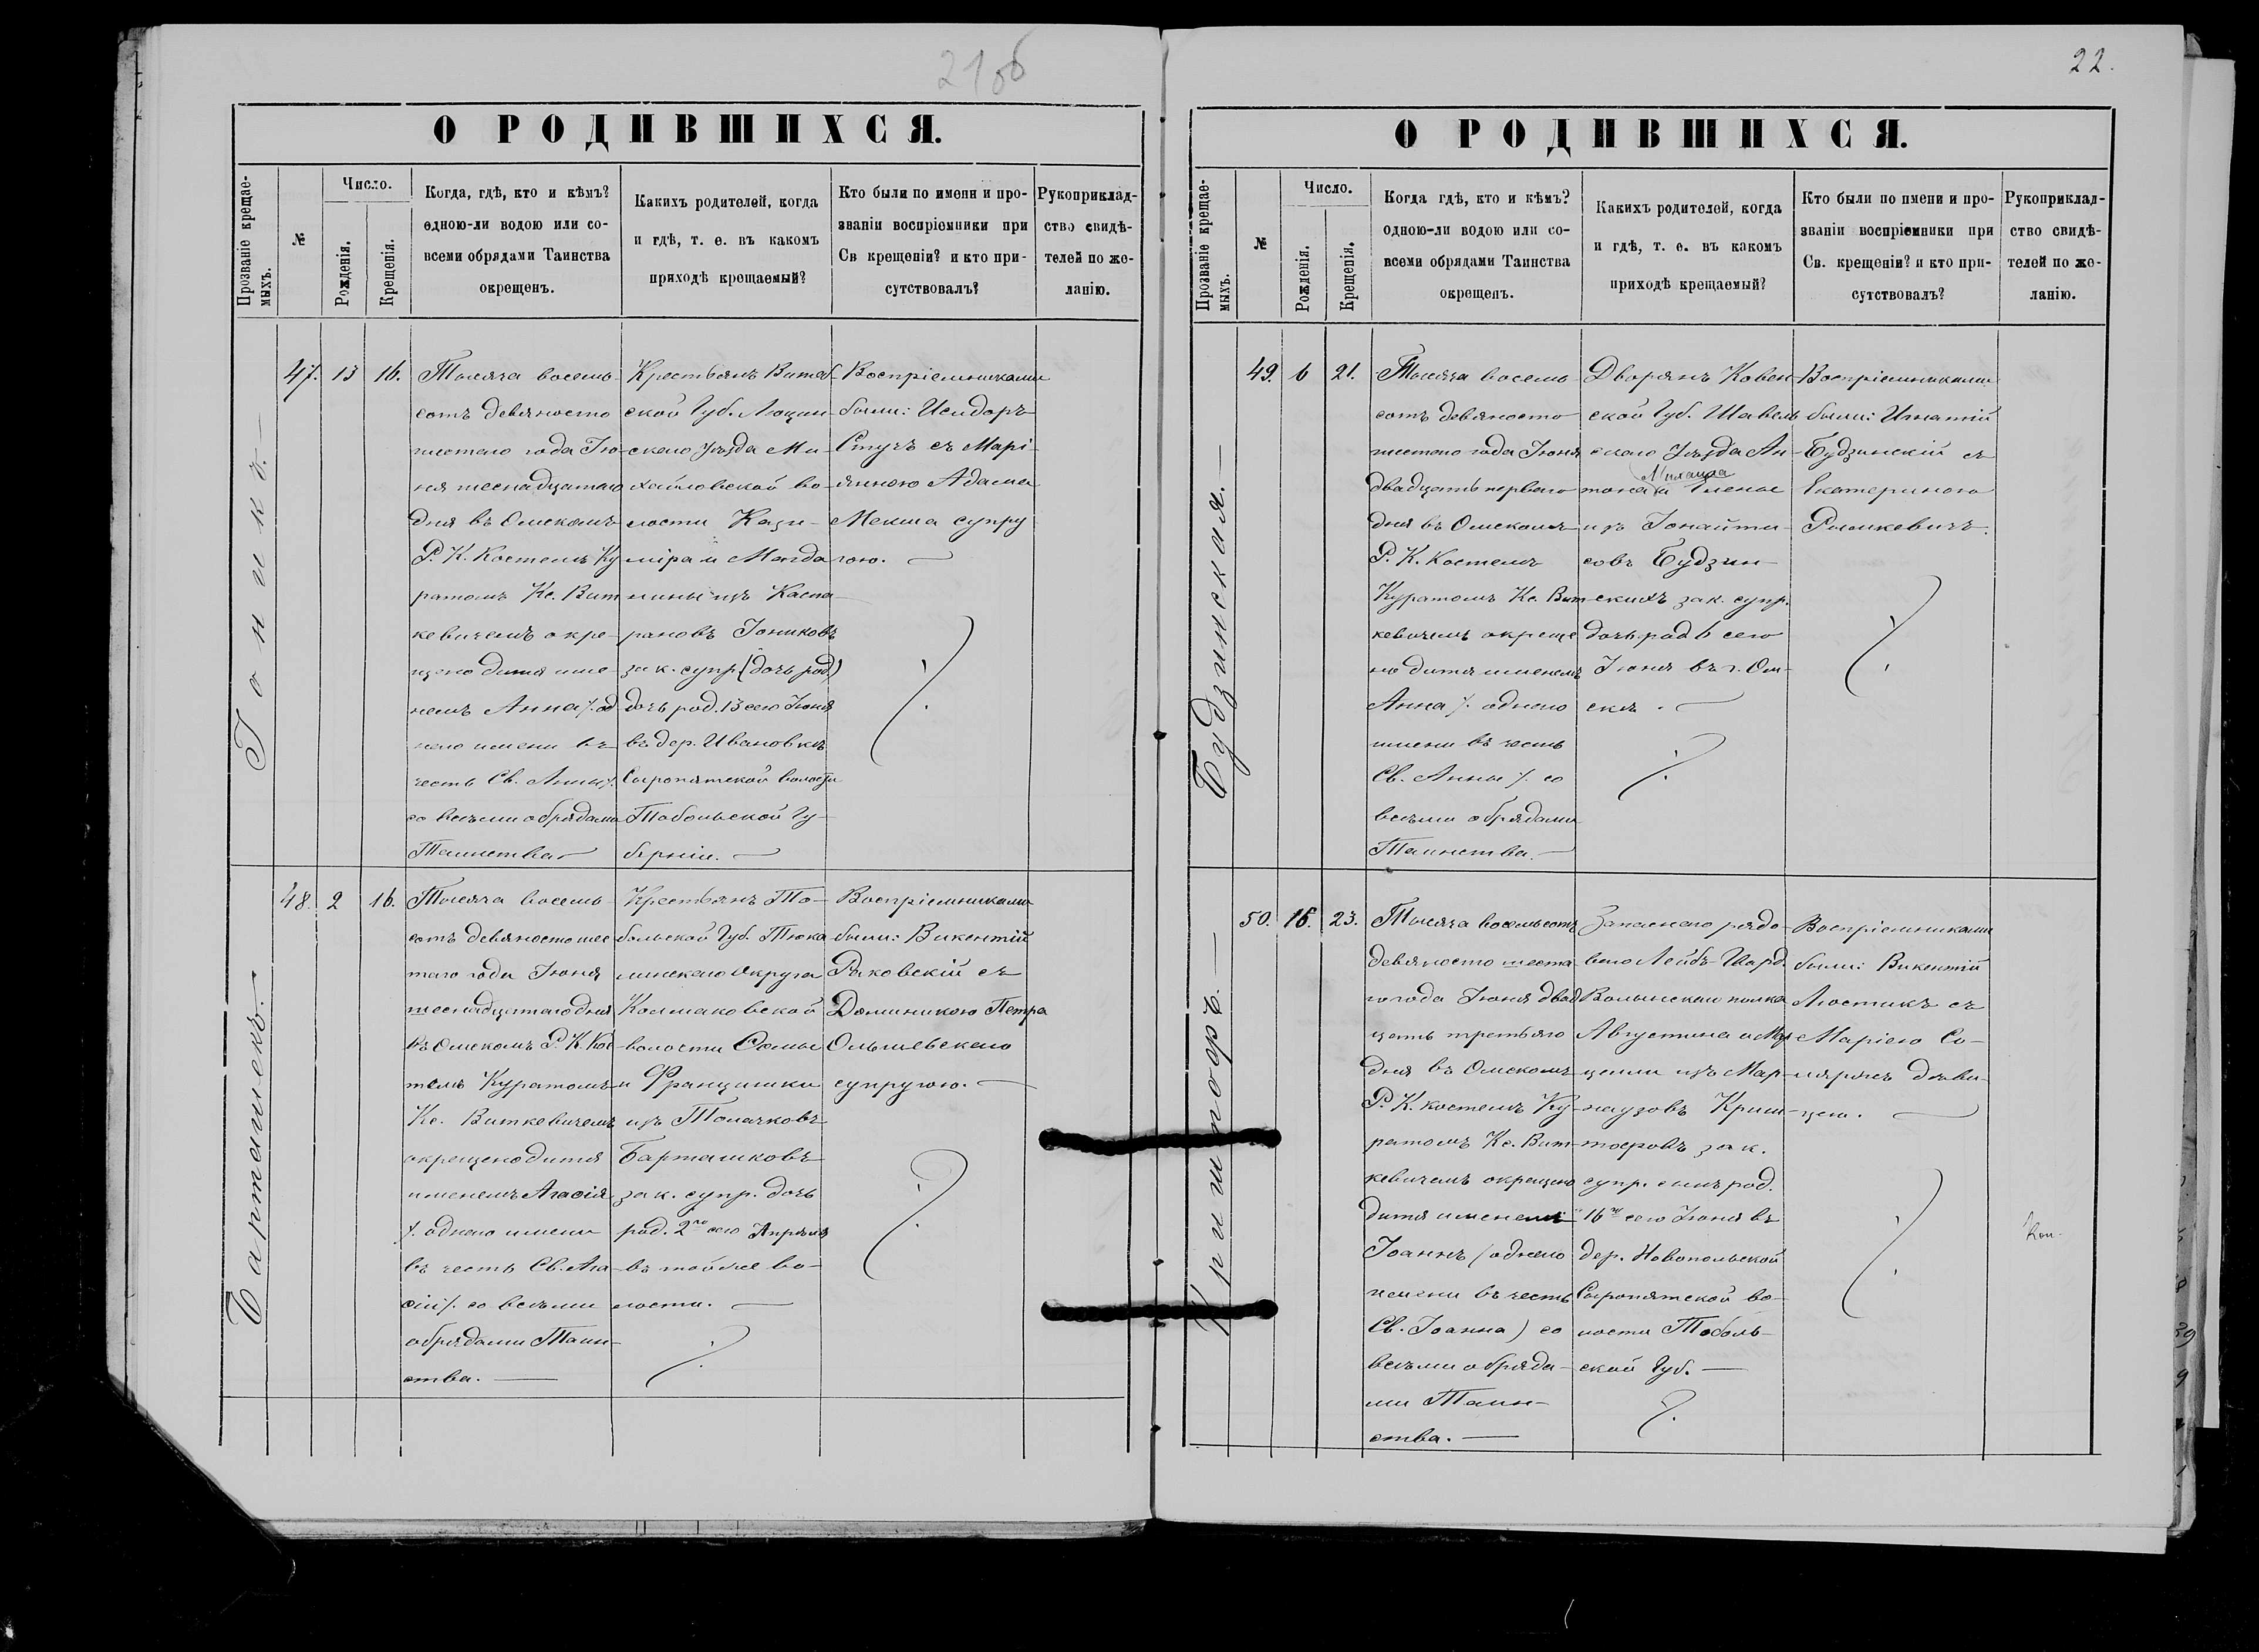 21об
О РОДИВШИХСЯ.
Прозваніе крещае-
мыхъ.
№
Число.
Рожденія.
Крещенія.
Когда, гдѣ, кто и кѣмъ?
одною-ли водою или со-
всеми обрядами Таинства
окрещенъ.
Какихъ родителей, когда
и гдѣ, т. е. въ какомъ
приходѣ крещаемый?
Кто были по имени и про-
званіи воспріемники при
Св крещеніи? и кто при-
сутствовалъ?
Рукоприклад-
ство свидѣ-
телей по же-
ланію.
Іоникъ.
47. 13 16.
Тысяча восемь-
сотъ девяносто
шестаго года Ію-
ня шеснадцатаго
дня въ Омскомъ
Р. К. Костелѣ Ку
ратомъ Кс. Вит
кевичемъ окре-
щено дитя име-
немъ Анна /. од
ного имени въ
честь Св. Анны /.
со всѣми обрядами
Таинства
Крестьянъ Витеб
ской Губ. Люцин-
скаго уѣзда Ми-
хайловской во-
лости Кази-
міра и Магда
лины изъ Каспа-
рановъ Іониковъ
зак. супр. (дочь род)
дочь род. 13 сего Іюня
въ дер. Ивановкѣ
Сыропятской волости
Тобольской Гу-
берніи.
Воспріемниками
были: Исидоръ
Стучъ съ Марі-
янною Адама
Мекша супру
гою.
Барташекъ.
48. 2 16.
Тысяча восемь-
сотъ девяносто шес
таго года Іюня
шеснадцатаго дня
въ Омскомъ Р. К. Кос
телѣ Куратомъ
Кс. Виткевичемъ
окрещено дитя
именемъ Агафія
/. одного имени
въ честь Св. Ага
фіи /. со всѣми
обрядами Таин-
ства.
Крестьянъ То-
больской Губ. Тюка
линскаго Округа
Колмаковской
волости Ѳомы
и Францишки
изъ Томачковъ
Барташковъ
зак. супр. дочь
род. 2го сего Апрѣля
въ той же во-
лости.
Воспріемниками
были: Викентій
Раковскій съ
Доминикою Петра
Ольшевскаго
супругою.
22.
О РОДИВШИХСЯ.
Прозваніе крещае-
мыхъ.
№
Число.
Рожденія.
Крещенія.
Когда гдѣ, кто и кѣмъ?
одною-ли водою или со-
всеми обрядами Таинства
окрещенъ.
Какихъ родителей, когда
и гдѣ, т. е. въ какомъ
приходѣ крещаемый?
Кто были по имени и про-
званіи воспріемники при
Св. крещеніи? и кто при-
сутствовалъ?
Рукоприклад-
ство свидѣ-
телей по же-
ланію.
Будзинская.
49. 6 21.
Тысяча восемь
сотъ девяносто
шестаго года Іюня
двадцать перваго
дня въ Омскомъ
Р. К. Костелѣ
Куратомъ Кс. Вит
кевичемъ окреще
но дитя именемъ
Анна /. одного
имени въ честь
Св. Анны /. со
всѣми обрядами
Таинства.
Дворянъ Ковен
ской Губ. Шавель
скаго Уѣзда Ан-
тона и Елены
изъ Іонайти-
совъ Будзин-
скихъ зак. супр.
дочь род 6 сего
Іюня въ г. Ом-
скѣ.
Воспріемниками
были: Игнатій
Будзинскій съ
Екатериною
Рымкевичъ.
Криштофъ.
50. 16. 23.
Тысяча восемьсотъ
девяносто шеста-
го года Іюня двад
цать третьяго
дня въ Омскомъ
Р. К. костелѣ Ку-
ратомъ Кс. Вит-
кевичемъ окрещено
дитя именемъ
Іоаннъ (одного
имени въ честь
Св. Іоанна) со
всѣми обряда-
ми Таин-
ства.
Запаснаго рядо-
ваго Лейбъ-Гвард.
Волынскаго полка
Августина и Мар
цели изъ Мар-
наузовъ Криш-
тофовъ зак.
супр. сынъ род.
16го сего Іюня въ
дер. Новопольской
Сыропятской во-
лости Тоболь-
ской Губ.
Воспріемниками
были: Викентій
Люстикъ съ
Маріею Сто-
ляръ дѣви-
цею.
Коп.